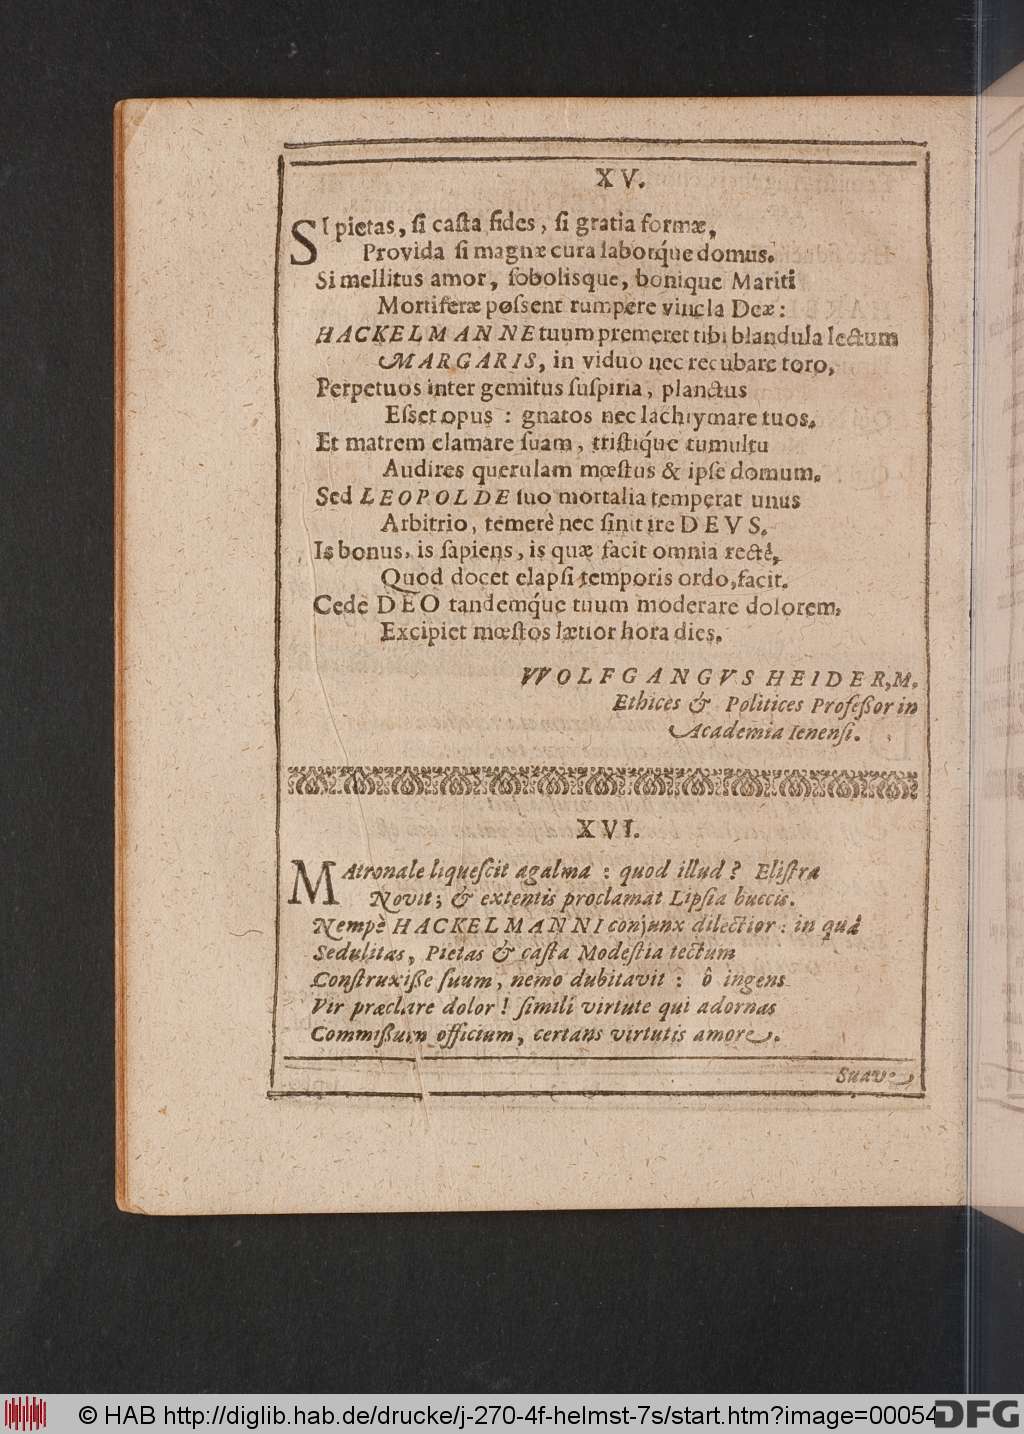 XV.
SI pietas, ſi caſta fides, ſi gratia formæ,
Provida ſi magnæ cura laborq́ue domus.
Si mellitus amor, ſobolisque, bonique Mariti
Mortiferæ poſsent rumpere vincla Deæ:
HACKELMANNE tuum premeret tibi blandula lectum
MARGARIS, in viduo nec recubare toro,
Perpetuos inter gemitus ſuſpiria, planctus
Eſset opus: gnatos nec lachrymare tuos.
Et matrem clamare ſuam, triſtiq́ue tumultu
Audires querulam mœſtus & ipſe domum.
Sed LEOPOLDE ſuo mortalia temperat unus
Arbitrio, temerè nec ſinit ire DEVS.
Is bonus, is ſapiens, is quæ facit omnia rectè,
Quod docet elapſi temporis ordo, facit.
Cede DEO tandemq́ue tuum moderare dolorem,
Excipiet mœſtos lætior hora dies.
WOLFGANGVS HEIDER, M.
Ethices & Politices Profeßor in
Academia Ienenſi.
XVI.
MAtronale liqueſcit agalma: quod illud? Eliſtra
Novit; & extentis proclamat Lipſia buccis.
Nempè HACKELMANNI conjunx dilectior: in quâ
Sedulitas, Pietas & caſta Modeſtia tectum
Conſtruxiße ſuum, nemo dubitavit: ô ingens
Vir præclare dolor! ſimili virtute qui adornas
Commißum officium, certans virtutis amore.
Suave
© HAB http://diglib.hab.de/drucke/j-270-4f-helmst-7s/start.htm?image=00054
DFG